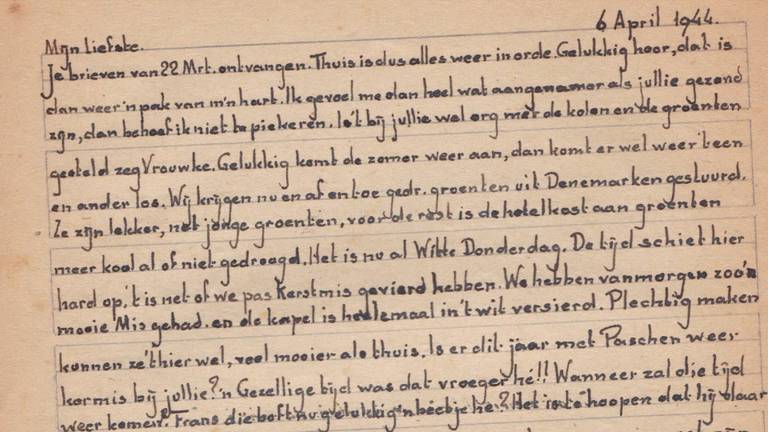 6 April 1944.
Mijn Liefste.
Je brieven van 22 Mrt. ontvangen. Thuis is dus alles weer in orde. Gelukkig hoor, dat is
dan weer 'n pak van m'n hart. Ik gevoel me dan heel wat aangenamer als jullie gezond
zijn, dan behoef ik niet te piekeren. Is't bij jullie wel erg met de kolen en de groenten
gesteld zeg Vrouwke. Gelukkig komt de zomer weer aan, dan komt er wel weer 't een
en ander los. Wij krijgen nu en af en toe gedr. groenten uit Denemarken gestuurd.
Ze zijn lekker, net jonge groenten, voor de rest is de hotelkost aan groenten
meer kool al of niet gedroogd. Het is nu al Witte Donderdag. De tijd schiet hier
hard op, 't is net of we pas Kerstmis gevierd hebben. We hebben vanmorgen zoo'n
mooie Mis gehad. en de kapel is heelemaal in 't wit versierd. Plechtig maken
kunnen ze't hier wel, veel mooier als thuis. Is er dit jaar met Paschen weer
kermis bij jullie? 'n Gezellige tijd was dat vroeger hé!! Wanneer zal die tijd
weer komen? Frans die boft nu gelukkig 'n beetje hé? Het is te hoopen dat hij daar